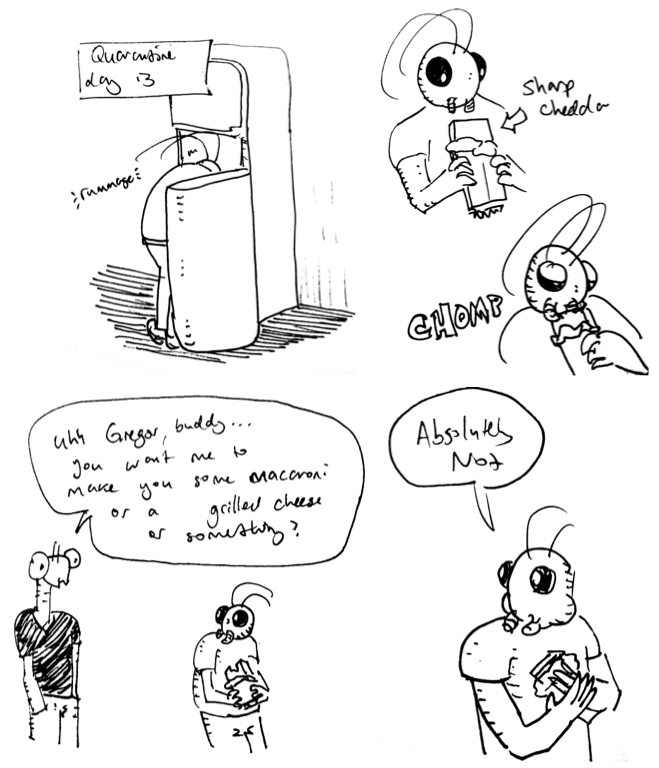 Quarantine
day 13
rummage
sharp
cheddar
CHOMP
uhh Gregor, buddy...
you want me to
make you some macaroni
or a grilled cheese
or something?
Absolutely
Not